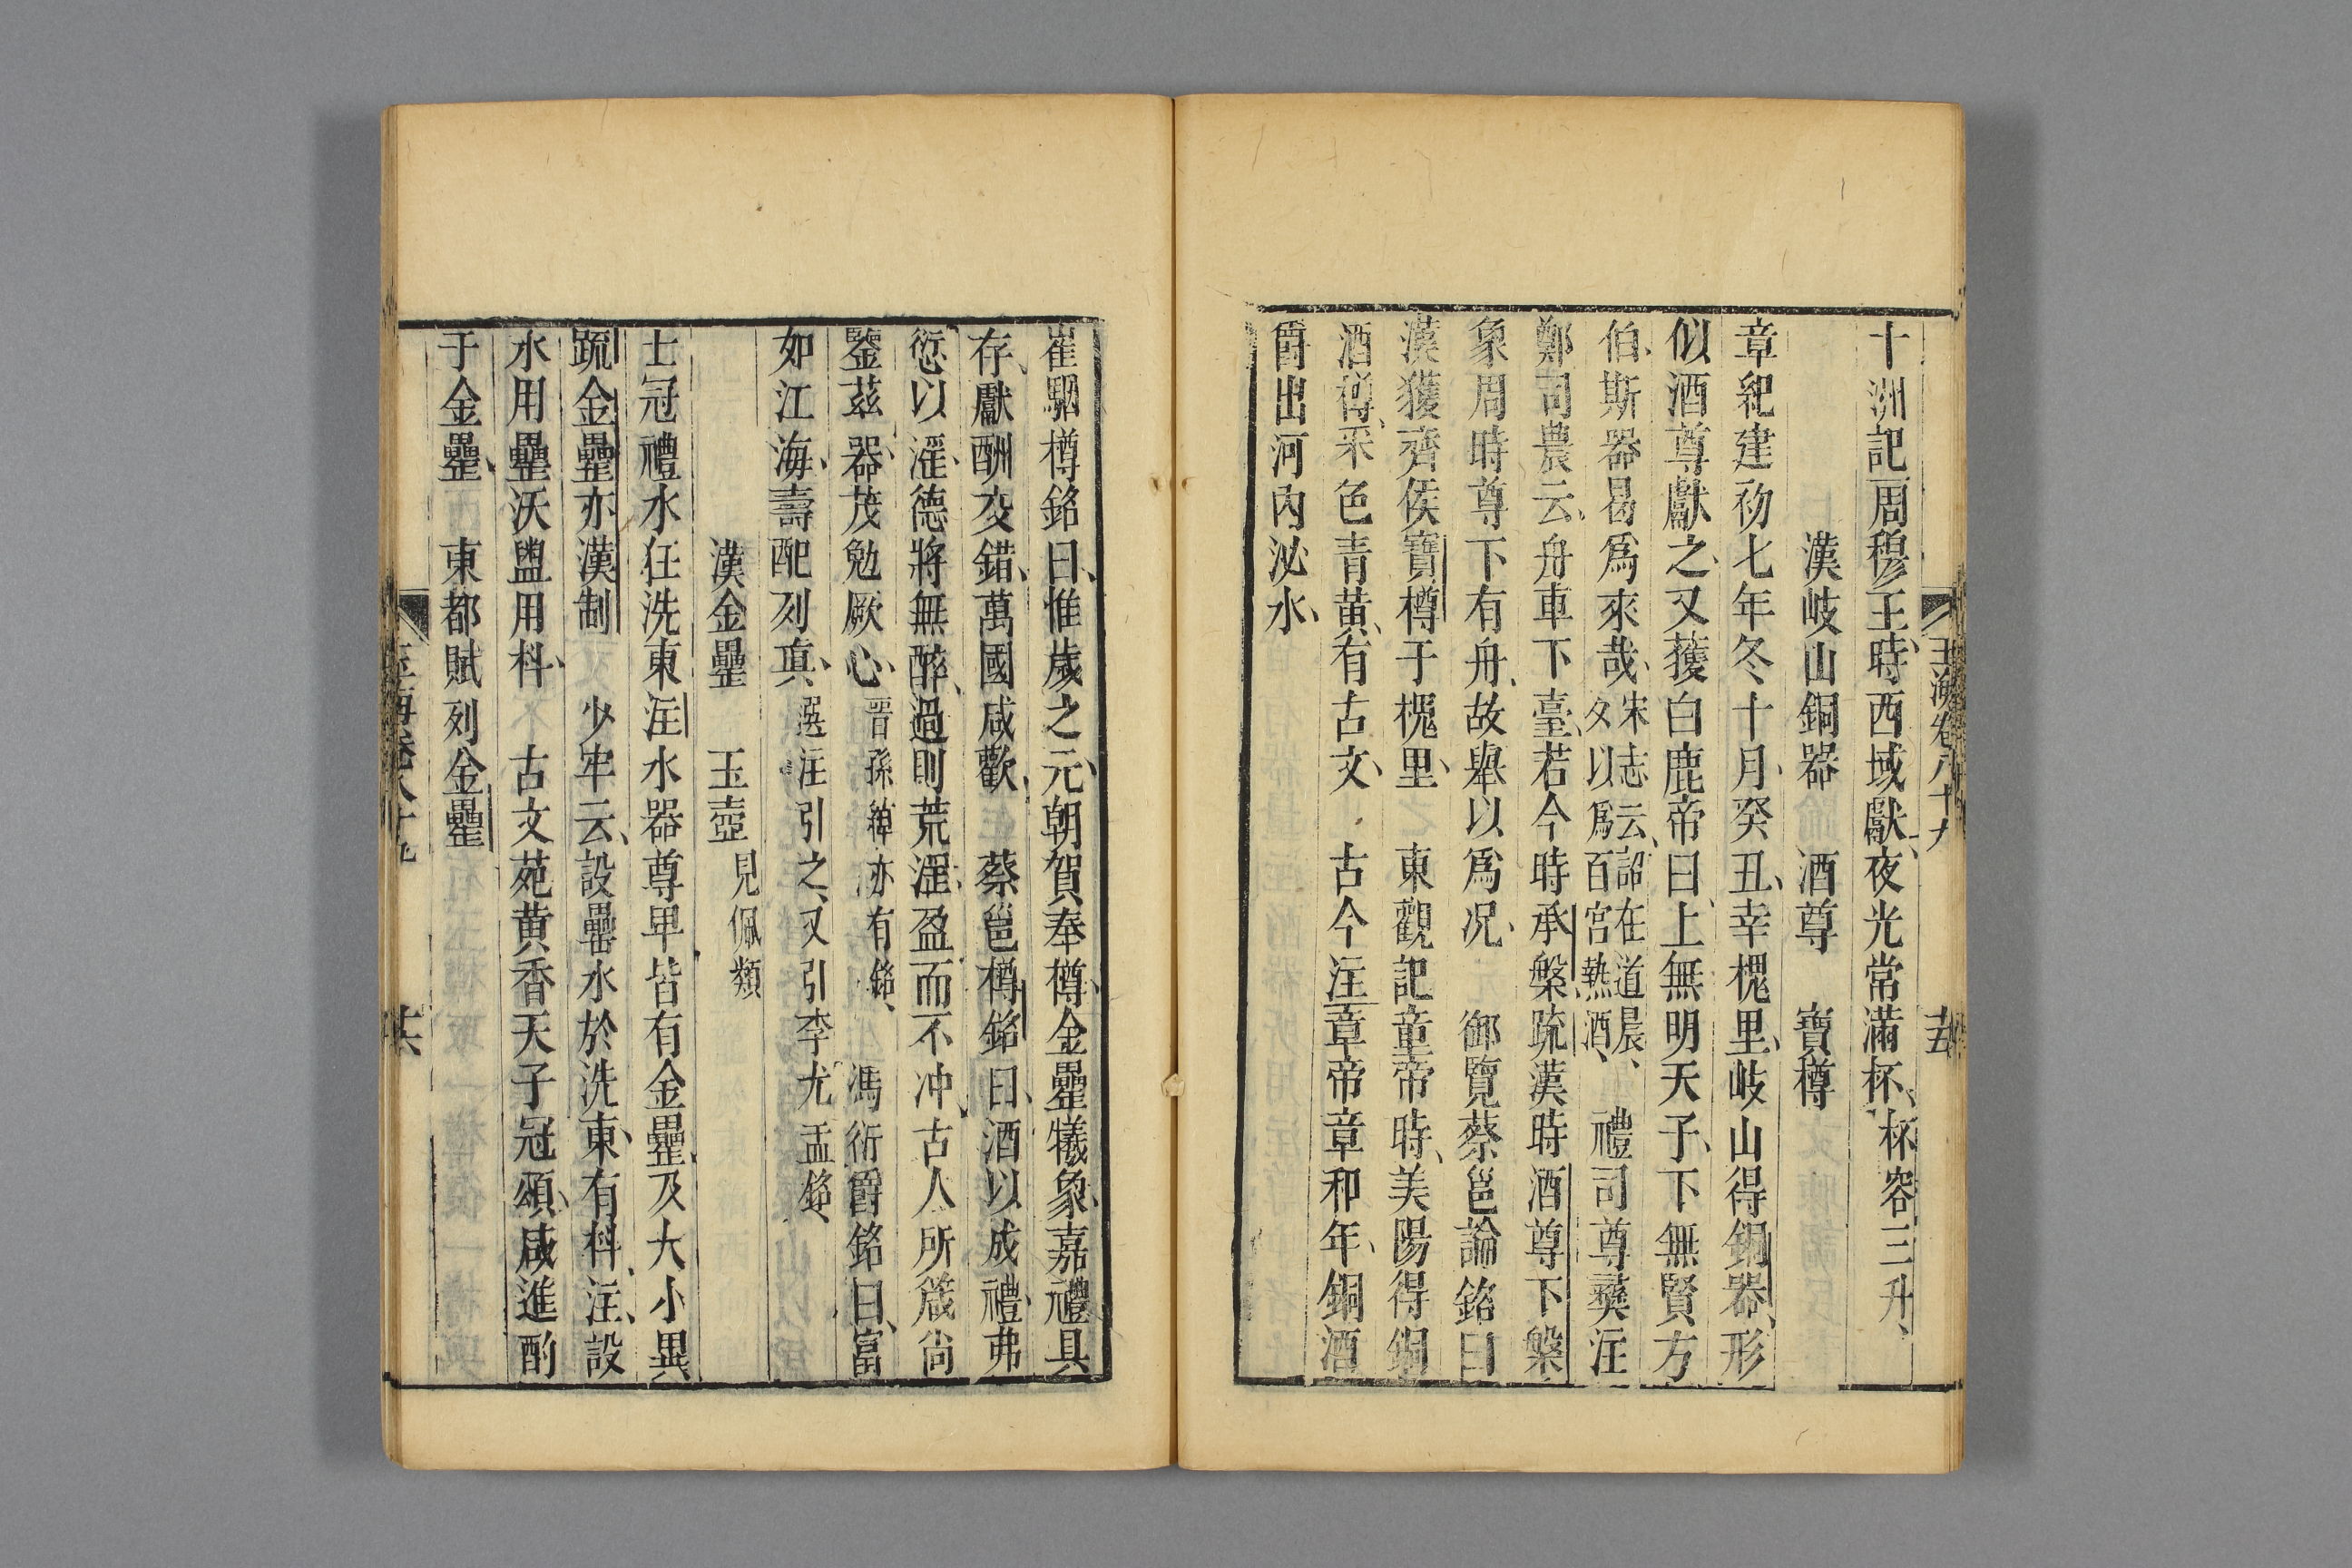 玉海卷八十九
十洲記周穆王時西域獻夜光常滿杯杯容三升
漢岐山銅器 酒尊 寶樽
章紀建初七年冬十月癸丑幸槐里岐山得銅器形
似酒尊獻之又獲白鹿帝曰上無明天子下無賢方
伯斯器曷爲來哉
宋志云詔在道晨
夕以爲百官熱酒
禮司尊彝注
鄭司農云舟車下臺若今時承槃疏漢時酒尊下槃
象周時尊下有舟故舉以爲况 御覽蔡邕論銘曰
漢獲齊侯寶樽于槐里 東觀記章帝時美陽得銅
酒樽采色青黄有古文 古今注章帝章和年銅酒
爵出河內泌水
崔駰樽銘曰惟歲之元朝賀奉樽金罍犧象嘉禮具
存獻酬交錯萬國咸歡 蔡邕樽銘曰酒以成禮弗
愆以淫德將無醉過則荒淫盈而不沖古人所箴尚
鑒茲器茂勉厥心
晉孫綽亦有銘
馮衍爵銘曰富
如江海壽配列真
選注引之又引李尤盂銘
漢金罍 玉壺見佩類
士冠禮水在洗東注水器尊卑皆有金罍及大小異
疏金罍亦漢制 少牢云設罍水於洗東有枓注設
水用罍沃盥用枓 古文苑黄香天子冠頌咸進酌
于金罍 東都賦列金罍
十六